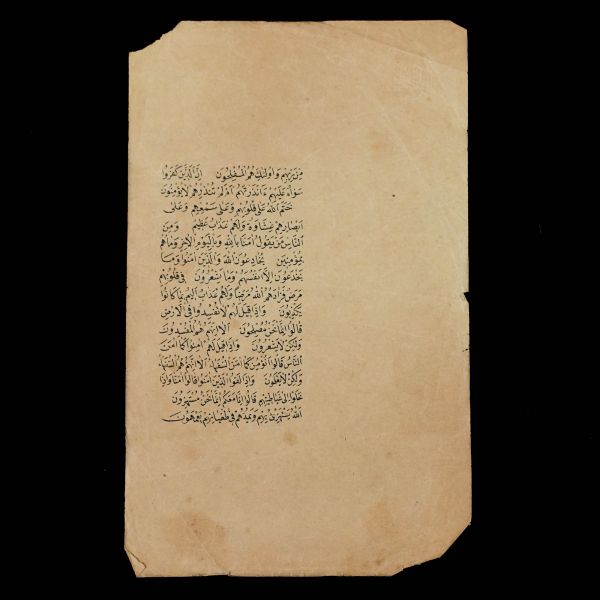 مِنْ رَبِّهِمْ وَاُولٰئِكَ هُمُ الْمُفْلِحُونَ اِنَّ الَّذِينَ كَفَرُوا
سَوَاءٌ عَلَيْهِمْ ءَاَنْذَرْتَهُمْ اَمْ لَمْ تُنْذِرْهُمْ لَا يُؤْمِنُونَ
خَتَمَ اللهُ عَلٰى قُلُوبِهِمْ وَعَلٰى سَمْعِهِمْ وَعَلٰى
اَبْصَارِهِمْ غِشَاوَةٌ وَلَهُمْ عَذَابٌ عَظِيمٌ وَمِنَ
النَّاسِ مَنْ يَقُولُ اٰمَنَّا بِاللهِ وَبِالْيَوْمِ الْاٰخِرِ وَمَا هُمْ
بِمُؤْمِنِينَ يُخَادِعُونَ اللهَ وَالَّذِينَ اٰمَنُوا وَمَا
يَخْدَعُونَ اِلَّا اَنْفُسَهُمْ وَمَا يَشْعُرُونَ فِى قُلُوبِهِمْ
مَرَضٌ فَزَادَهُمُ اللهُ مَرَضًا وَلَهُمْ عَذَابٌ اَلِيمٌ بِمَا كَانُوا
يَكْذِبُونَ وَاِذَا قِيلَ لَهُمْ لَا تُفْسِدُوا فِى الْاَرْضِ
قَالُوا اِنَّمَا نَحْنُ مُصْلِحُونَ اَلَا اِنَّهُمْ هُمُ الْمُفْسِدُونَ
وَلٰكِنْ لَا يَشْعُرُونَ وَاِذَا قِيلَ لَهُمْ اٰمِنُوا كَمَا اٰمَنَ
النَّاسُ قَالُوا اَنُؤْمِنُ كَمَا اٰمَنَ السُّفَهَاءُ اَلَا اِنَّهُمْ هُمُ السُّفَهَاءُ
وَلٰكِنْ لَا يَعْلَمُونَ وَاِذَا لَقُوا الَّذِينَ اٰمَنُوا قَالُوا اٰمَنَّا وَاِذَا
خَلَوْا اِلٰى شَيَاطِينِهِمْ قَالُوا اِنَّا مَعَكُمْ اِنَّمَا نَحْنُ مُسْتَهْزِؤُنَ
اَللهُ يَسْتَهْزِئُ بِهِمْ وَيَمُدُّهُمْ فِى طُغْيَانِهِمْ يَعْمَهُونَ